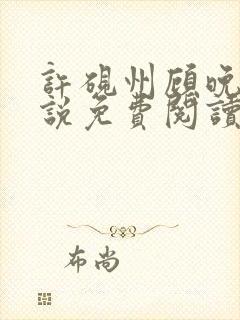 許硯州顧晚
說免費閱讀
布尚